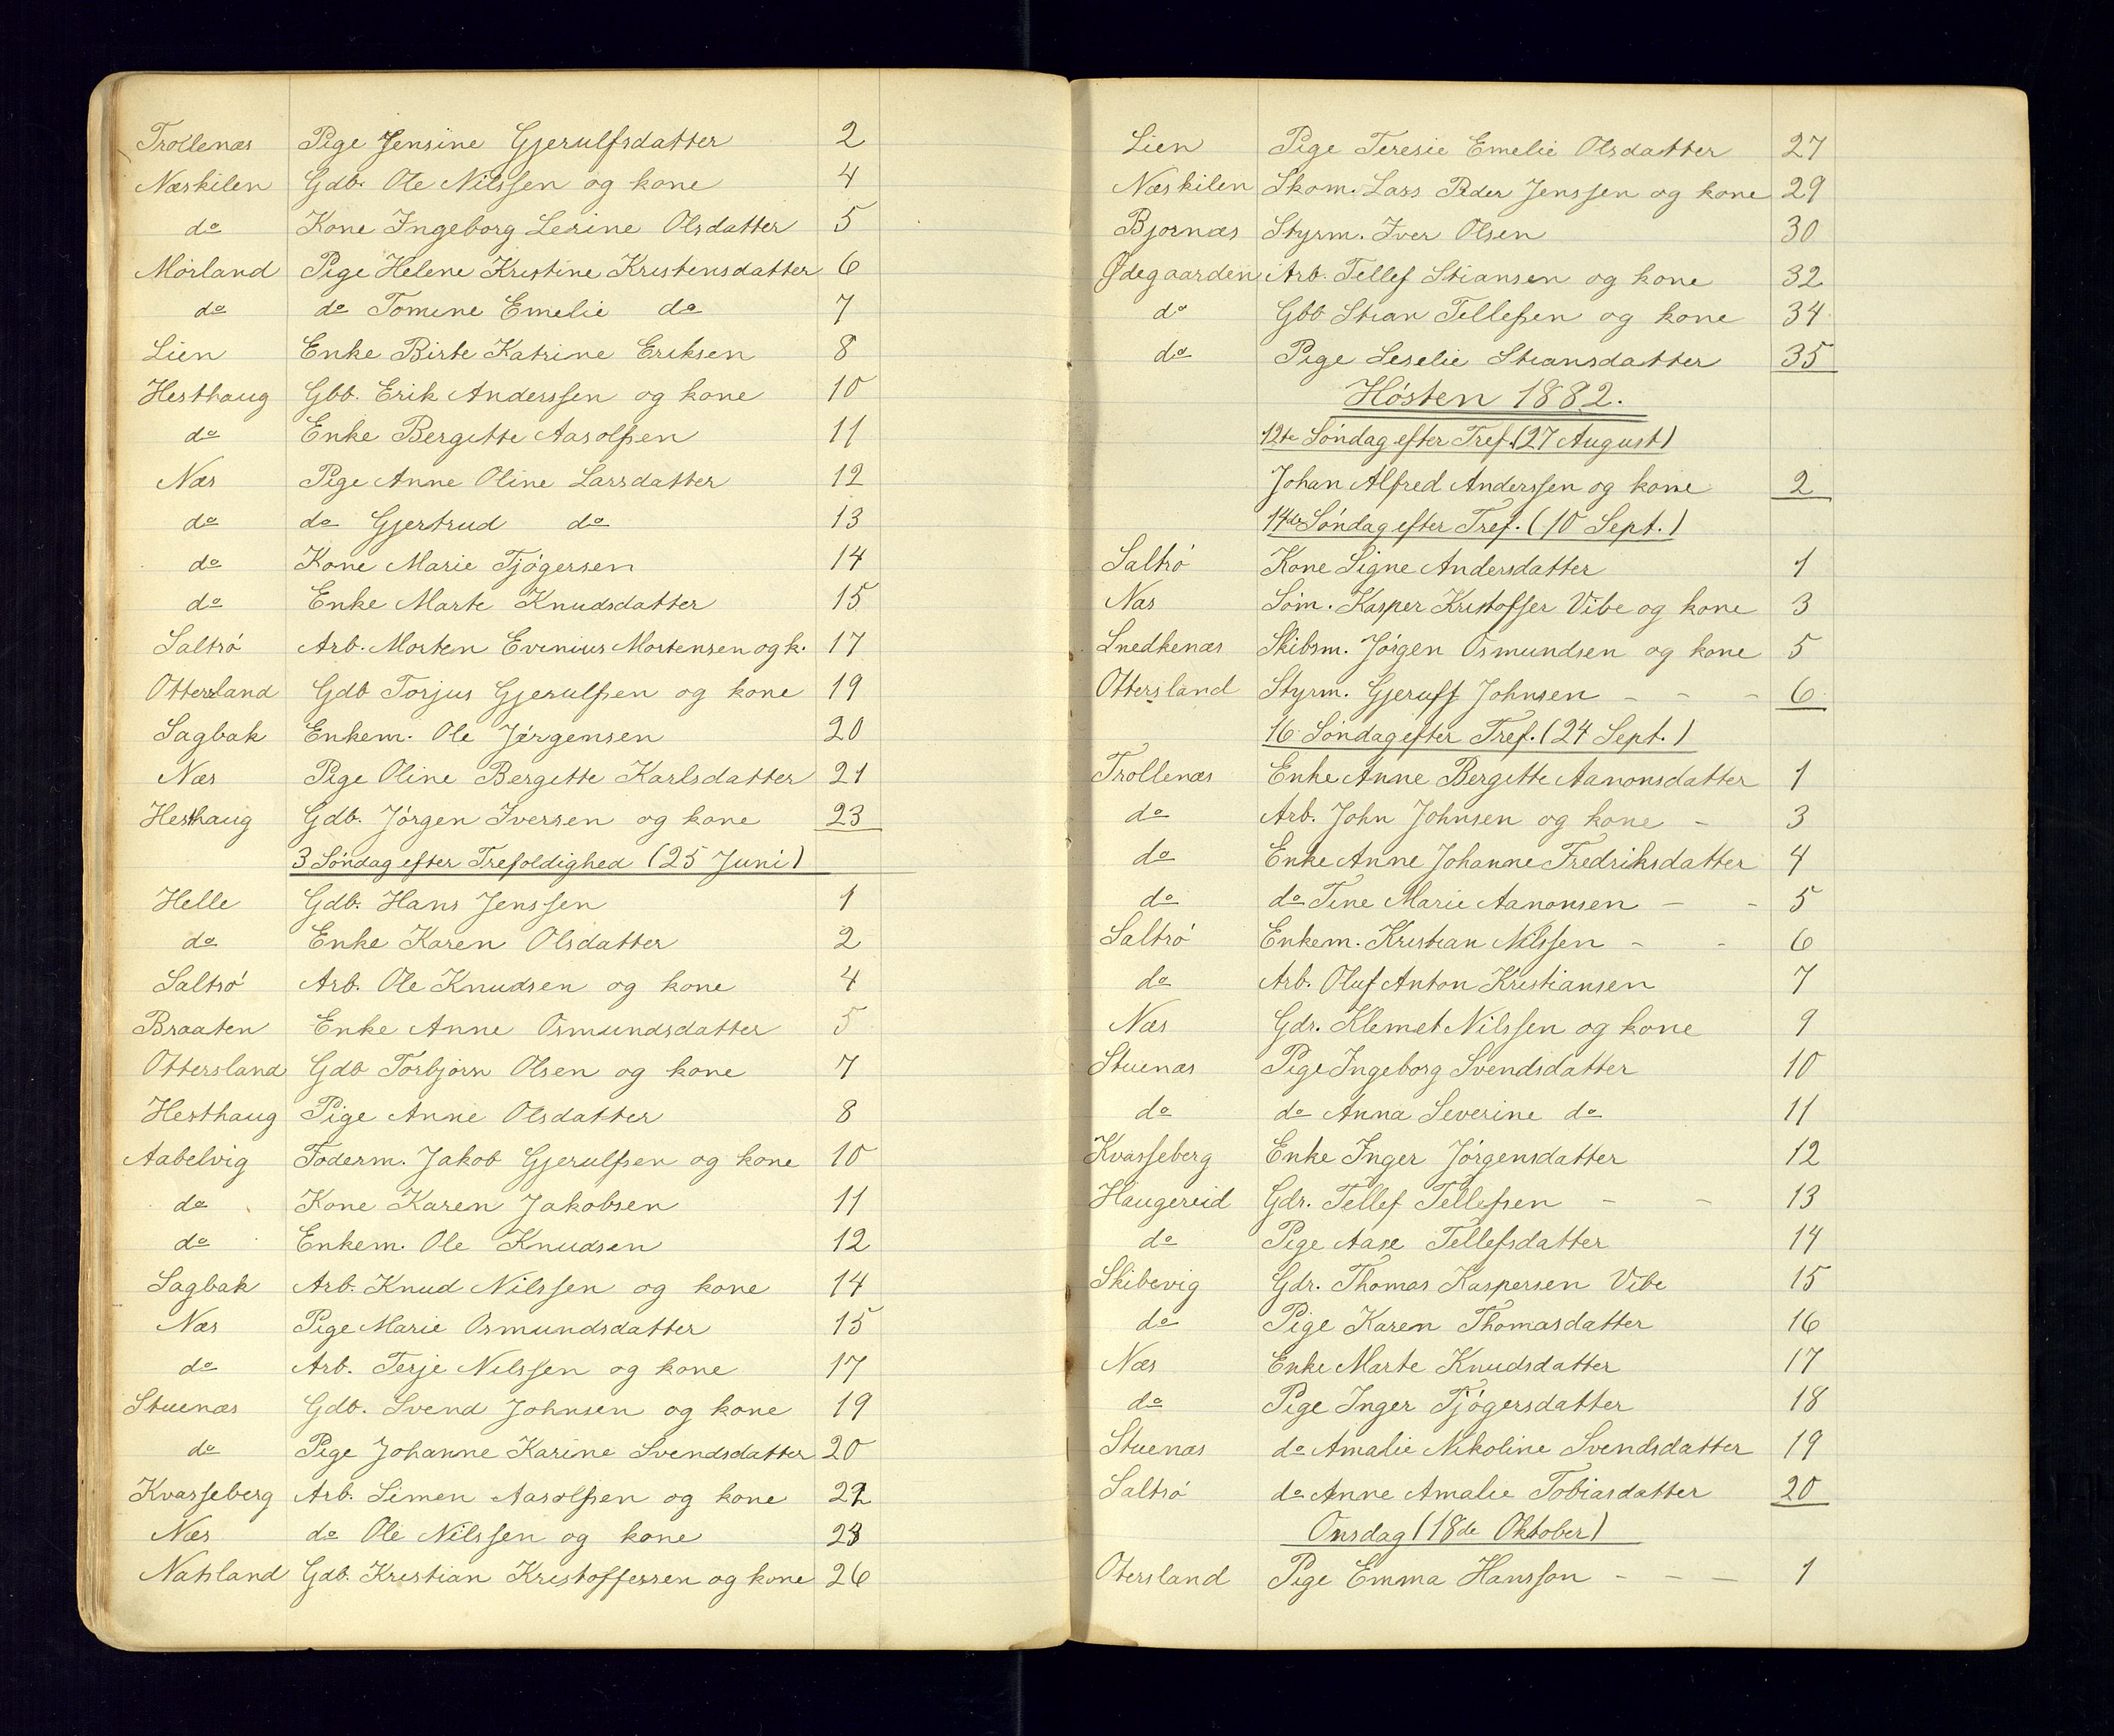 Trollenæs Pige Jensine Gjerulfsdatter 2
Næskilen Gdb. Ole Nilssen og kone 4
do Kone Ingeborg Lesine Olsdatter 5
Mörland Pige Helene Kristine Kristensdatter 6
do do Tomine Emelie do 7
Lien Enke Birte Katrine Eriksen 8
Hesthaug Gbb. Erik Anderssen og kone 10
do Enke Bergitte Aasolfsen 11
Næs Pige Anne Oline Larsdatter 12
do do Gjertrud do 13
do Kone Marie Tjögersen 14
do Enke Marte Knudsdatter 15
Saltrö Arb. Morten Evenius Mortensen og k. 17
Ottersland Gdb Torjus Gjerulfsen og kone 19
Sagbak Enkem. Ole Jörgensen 20
Næs Pige Oline Bergitte Karlsdatter 21
Hesthaug Gdb. Jörgen Iversen og kone 23
3 Söndag efter Trefoldighed (25 Juni)
Helle Gdb. Hans Jenssen 1
do Enke Karen Olsdatter 2
Saltrö Arb. Ole Knudsen og kone 4
Braaten Enke Anne Osmundsdatter 5
Ottersland Gdb Torbjörn Olsen og kone 7
Hesthaug Pige Anne Olsdatter 8
Aabelvig Föderm. Jakob Gjerulfsen og kone 10
do Kone Karen Jakobsen 11
do Enkem. Ole Knudsen 12
Sagbak Arb. Knud Nilssen og kone 14
Næs Pige Marie Osmundsdatter 15
do Arb. Terje Nilssen og kone 17
Stuenæs Gdb. Svend Johnsen og kone 19
do Pige Johanne Karine Svendsdatter 20
Kvasseberg Arb. Simen Aasolfsen og kone 22
Næs do Ole Nilssen og kone
Natsland Gdb. Kristian Kristoffersen og kone 26
Lien Pige Teresie Emelie Olsdatter 27
Næskilen Skom. Lars Peder Jenssen og kone 29
Bjornæs Styrm. Iver Olsen 30
Ødegaarden Arb. Tellef Stiansen og kone 32
do Gbb Stian Tellefsen og kone 34
do Pige Leselie Stiansdatter 35
Hösten 1882.
12te Söndag efter Tref. (27 August)
Johan Alfred Anderssen og kone 2
14de Söndag efter Tref. (10 Sept.)
Saltrö Kone Signe Andersdatter 1
Næs Söm. Kasper Kristoffer Vibe og kone 3
Snedkenæs Skibsm. Jörgen Osmundsen og kone 5
Ottersland Styrm. Gjeruff Johnsen - - - 6
16 Söndag efter Tref. (24 Sept.)
Trollenæs Enke Anne Bergitte Aanonsdatter 1
do Arb. John Johnsen og kone - 3
do Enke Anne Johanne Fredriksdatter 4
do do Tine Marie Aanonsen - - 5
Saltrö Enkem. Kristian Nilssen - - 6
do Arb. Oluf Anton Kristiansen 7
Næs Gdr. Klemet Nilssen og kone 9
Stuenæs Pige Ingeborg Svendsdatter 10
do do Anna Severine do 11
Kvasseberg Enke Inger Jörgensdatter 12
Haugereid Gdr. Tellef Tellefsen - - 13
do Pige Aase Tellefsdatter 14
Skibevig Gdr. Thomas Kaspersen Vibe 15
do Pige Karen Thomasdatter 16
Næs Enke Marte Knudsdatter 17
do Pige Inger Tjögersdatter 18
Stuenæs do Amalie Nikoline Svendsdatter 19
Saltrö do Anne Amalie Tobiasdatter 20
Onsdag (18de Oktober)
Otersland Pige Emma Hansson - - - 1